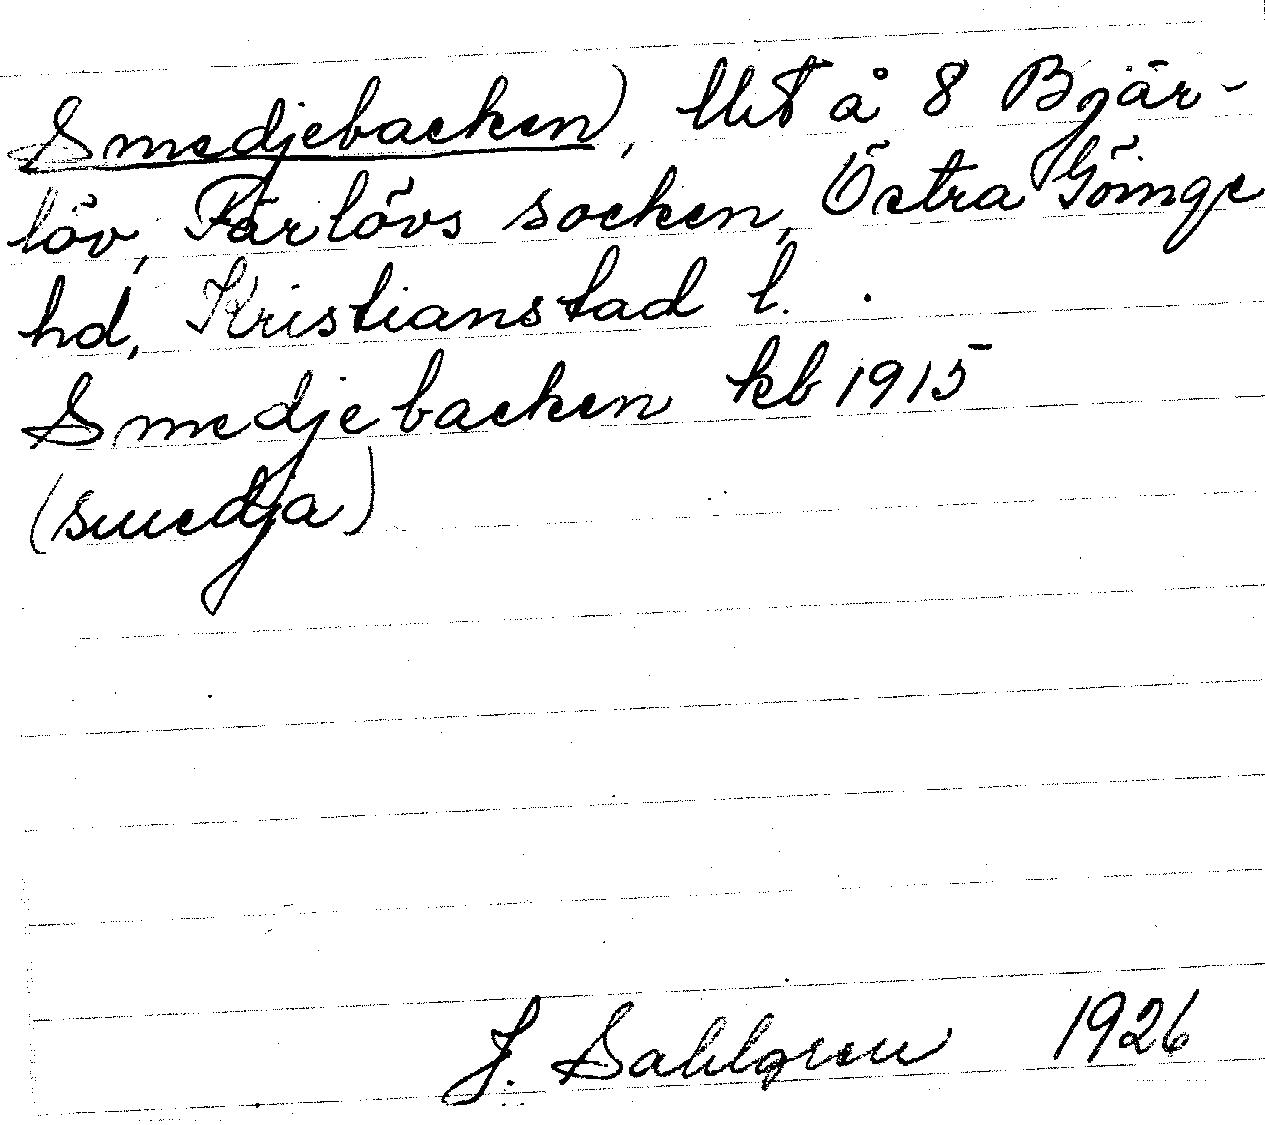 Smedjebacken), lht å 8 Bjär-
löv, Färlövs socken, Östra Göinge
hd, Kristianstad l.
Smedjebacken kb 1915
(smedja)
J. Sahlgren 1926